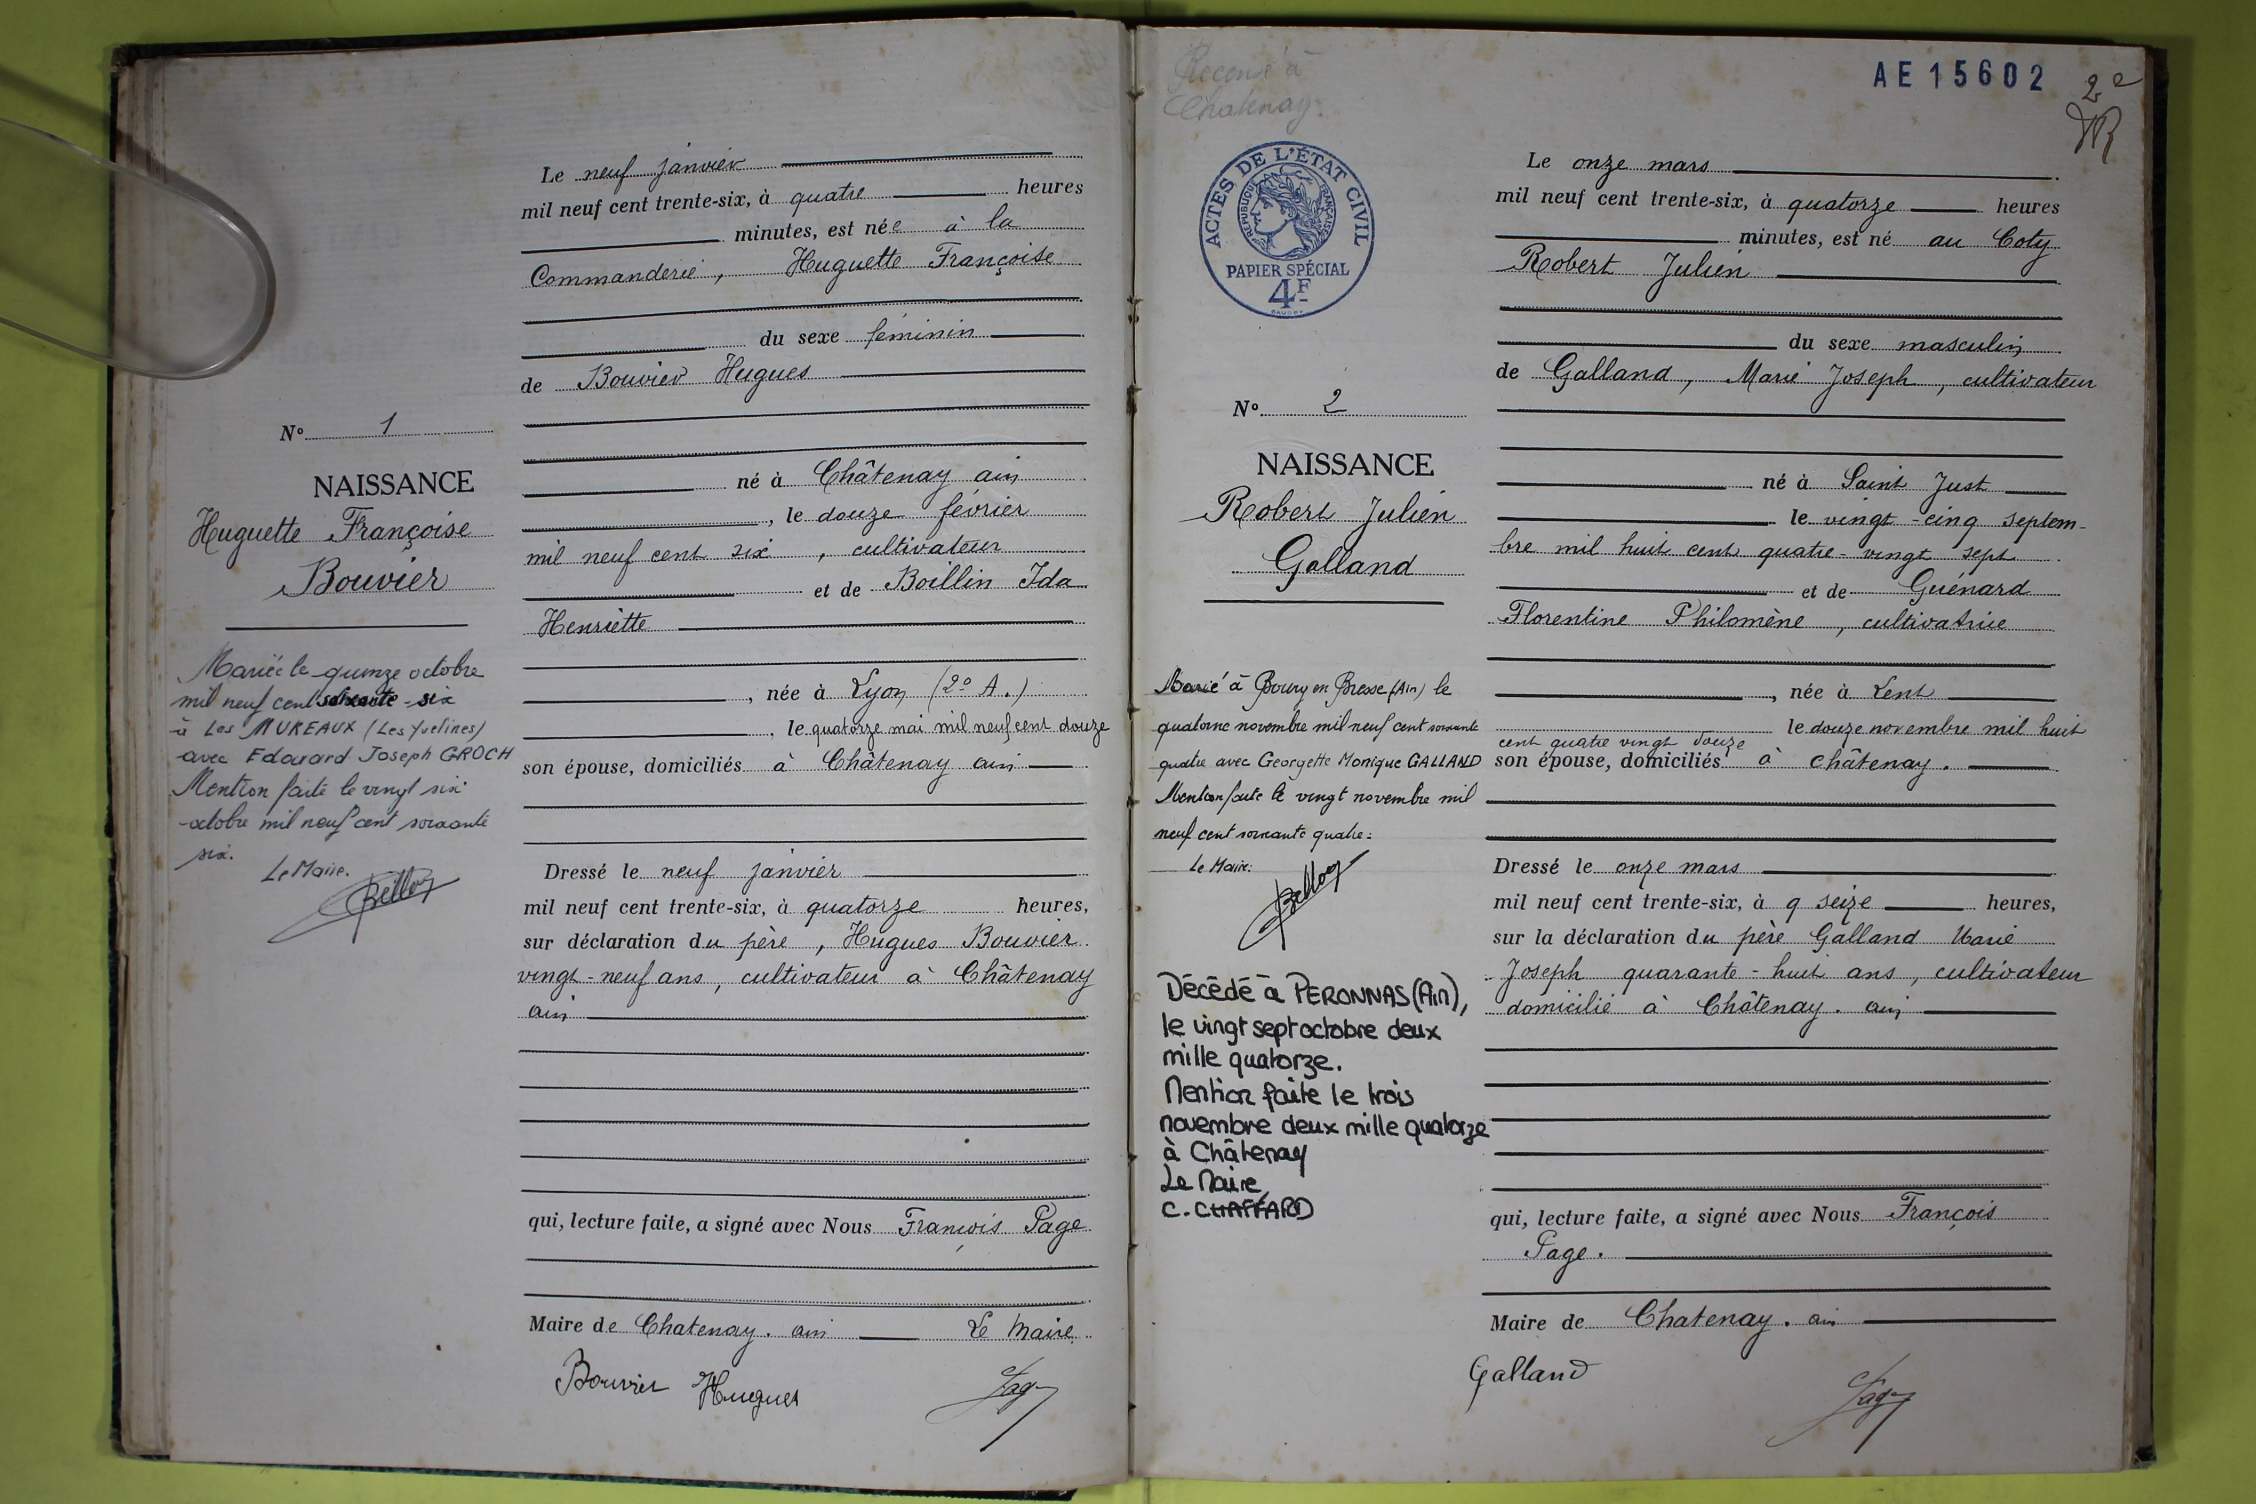 N° 1
NAISSANCE
Huguette Françoise
Bouvier
Mariée le quinze octobre
mil neuf cent soixante-six
à Les MUREAUX (Les Yvelines)
avec Edouard Joseph GROCH
Mention faite le vingt six
octobre mil neuf cent soixante
six.
Le Maire.
Le neuf janvier
mil neuf cent trente-six, à quatre heures
minutes, est née à la
Commanderie, Huguette Françoise
du sexe féminin
de Bouvier Hugues
né à Châtenay ain
, le douze février
mil neuf cent six, cultivateur
et de Boillin Ida
Henriette
, née à Lyon (2° A.)
, le quatorze mai mil neuf cent douze
son épouse, domiciliés à Châtenay ain
Dressé le neuf janvier
mil neuf cent trente-six, à quatorze heures,
sur déclaration du père, Hugues Bouvier
vingt-neuf ans, cultivateur à Châtenay
ain
qui, lecture faite, a signé avec Nous François Page
Maire de Chatenay. ain Le Maire
Bouvier Hugues
Page
Chatenay.
AE 15602
2e
ACTES DE L'ÉTAT CIVIL
RÉPUBLIQUE FRANÇAISE
PAPIER SPÉCIAL
4F
N° 2
NAISSANCE
Robert Julien
Galland
Marié à Bourg en Bresse (Ain) le
quatorze novembre mil neuf cent soixante
quatre avec Georgette Monique GALLAND
Mention faite le vingt novembre mil
neuf cent soixante quatre.
Le Maire:
Décédé à PERONNAS (Ain),
le vingt sept octobre deux
mille quatorze.
Mention faite le trois
novembre deux mille quatorze
à Châtenay
Le Maire
C. CHAFFARD
Le onze mars
mil neuf cent trente-six, à quatorze heures
minutes, est né au Coty
Robert Julien
du sexe masculin
de Galland, Marie Joseph, cultivateur
né à Saint Just
le vingt-cinq septem-
bre mil huit cent quatre-vingt sept
et de Guénard
Florentine Philomène, cultivatrice
, née à Lent
le douze novembre mil huit
cent quatre vingt douze
son épouse, domiciliés à Châtenay.
Dressé le onze mars
mil neuf cent trente-six, à q seize heures,
sur la déclaration du père Galland Marie
Joseph quarante-huit ans, cultivateur
domicilié à Châtenay. ain
qui, lecture faite, a signé avec Nous François
Page.
Maire de Chatenay. ain
Galland
Page